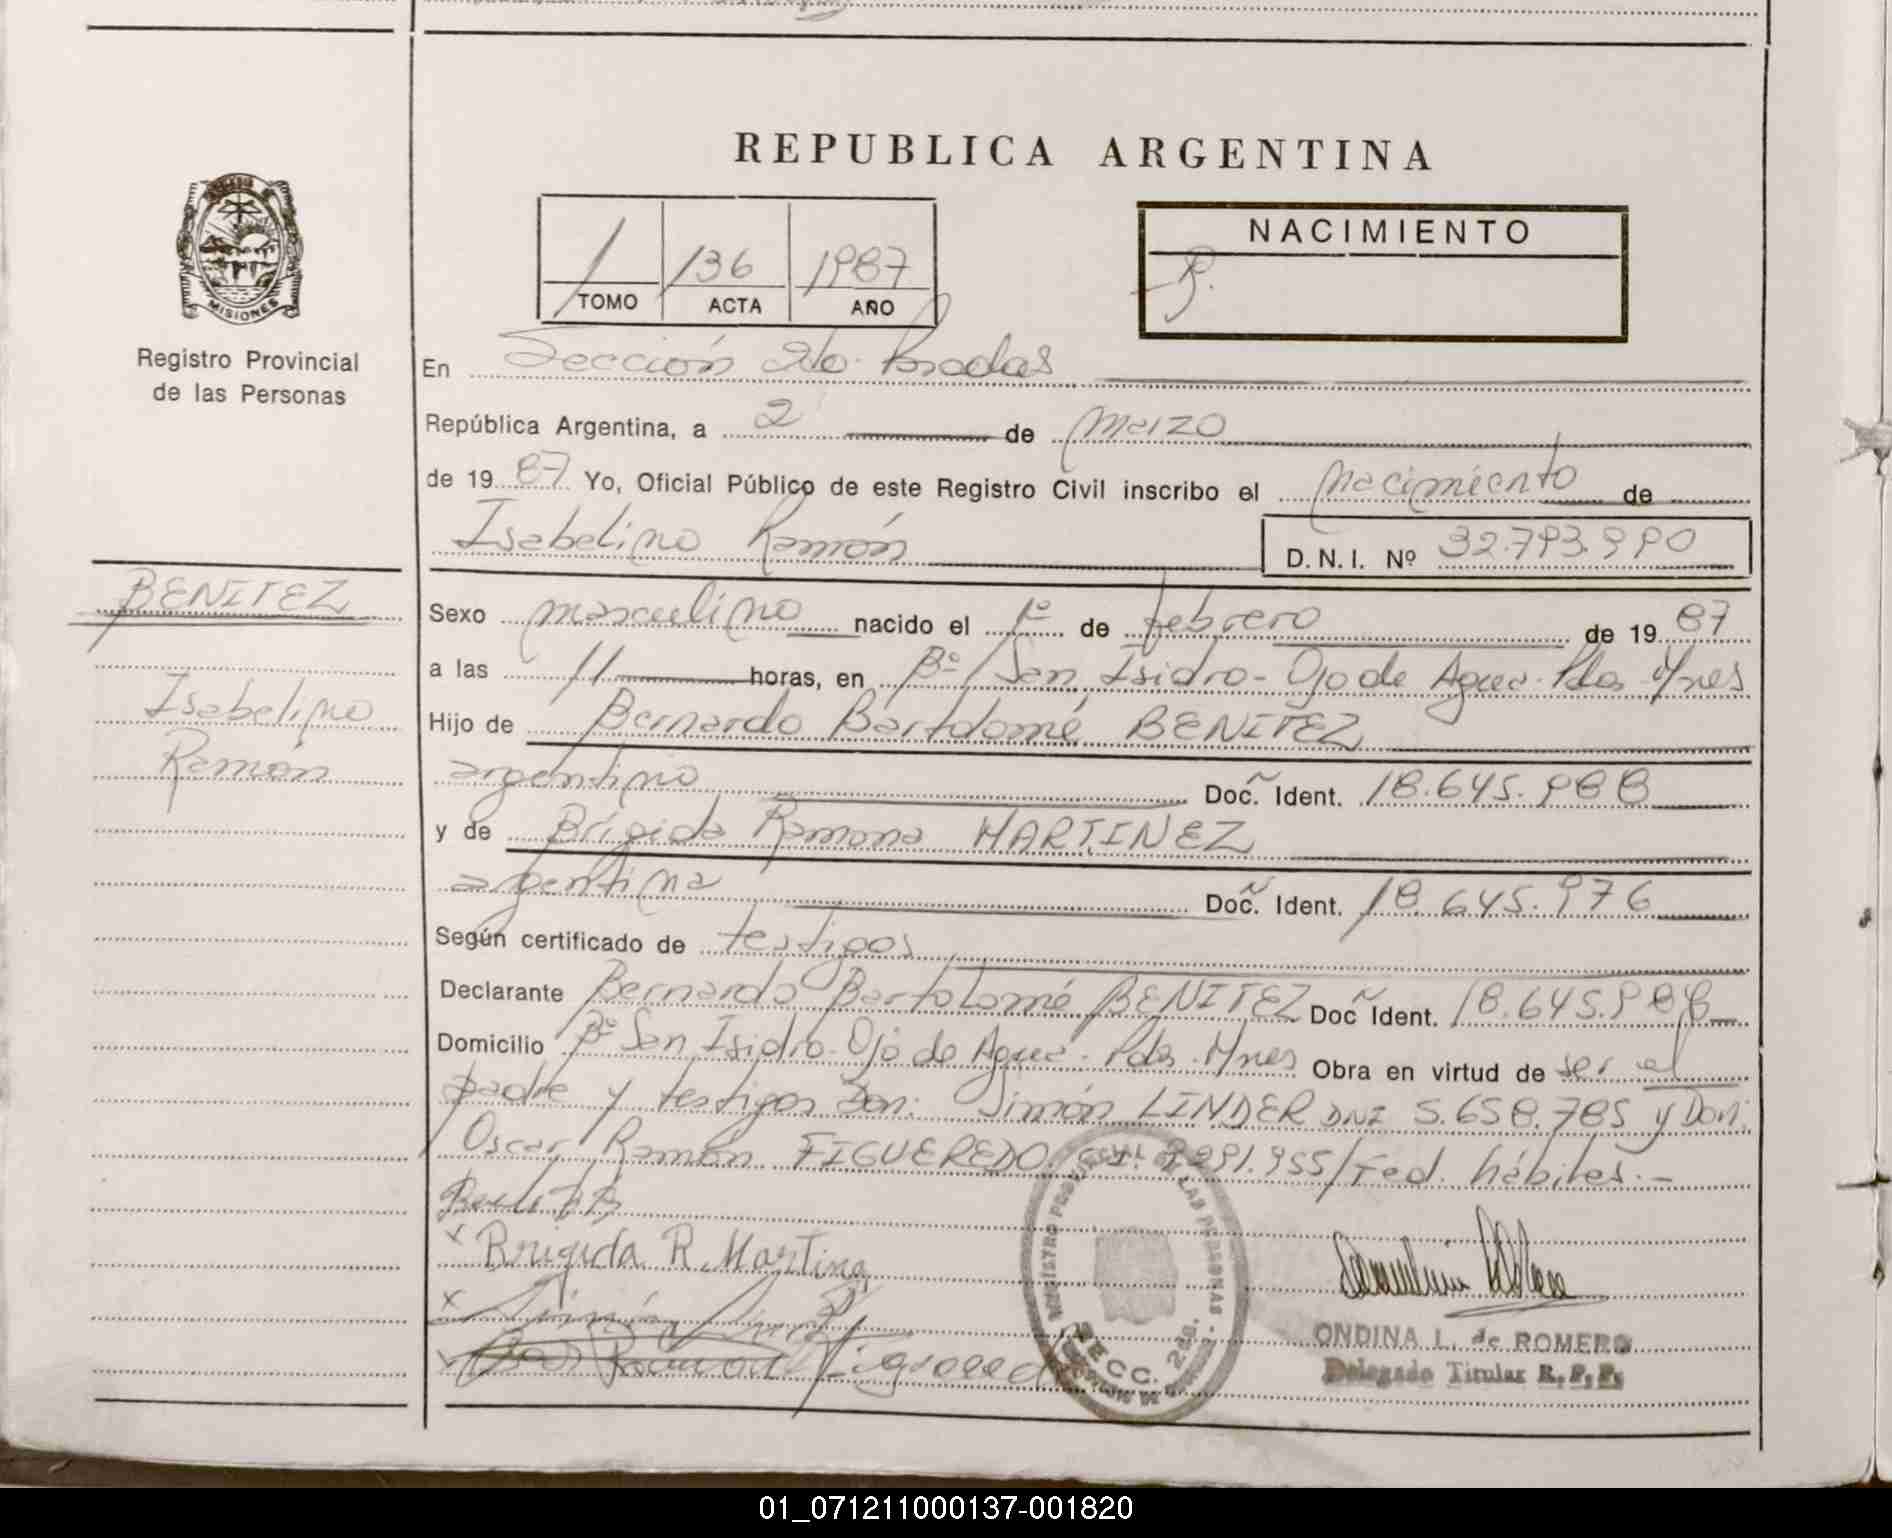 REPUBLICA ARGENTINA
1 136 1987
TOMO ACTA AÑO
NACIMIENTO
MISIONES
Registro Provincial
de las Personas
En Sección 2da. Posadas
República Argentina, a 2 de Marzo
de 1987 Yo, Oficial Público de este Registro Civil inscribo el Nacimiento de
Isabelino Ramón D.N.I. Nº 32.793.990
BENITEZ
Isabelino
Ramón
Sexo masculino nacido el 1º de febrero de 1987
a las 11 horas, en Bº San Isidro - Ojo de Agua - Pdas. Mnes
Hijo de Bernardo Bartolomé BENITEZ
argentino Doc. Ident. 18.645.988
y de Brígida Ramona MARTINEZ
argentina Doc. Ident. 18.645.976
Según certificado de testigos
Declarante Bernardo Bartolomé BENITEZ Doc Ident. 18.645.988
Domicilio Bº San Isidro - Ojo de Agua - Pdas. Mnes Obra en virtud de ser el
padre y testigos Don: Simón LINDER DNI 5.658.785 y Don:
Oscar Ramón FIGUEREDO C.I. 291.955/Fed. hábiles.-
x Brugida R. Martinez
x
REGISTRO PROVINCIAL DE LAS PERSONAS
SECC. 2da.
ONDINA L. de ROMERO
Delegado Titular R. P. P.
01_071211000137-001820